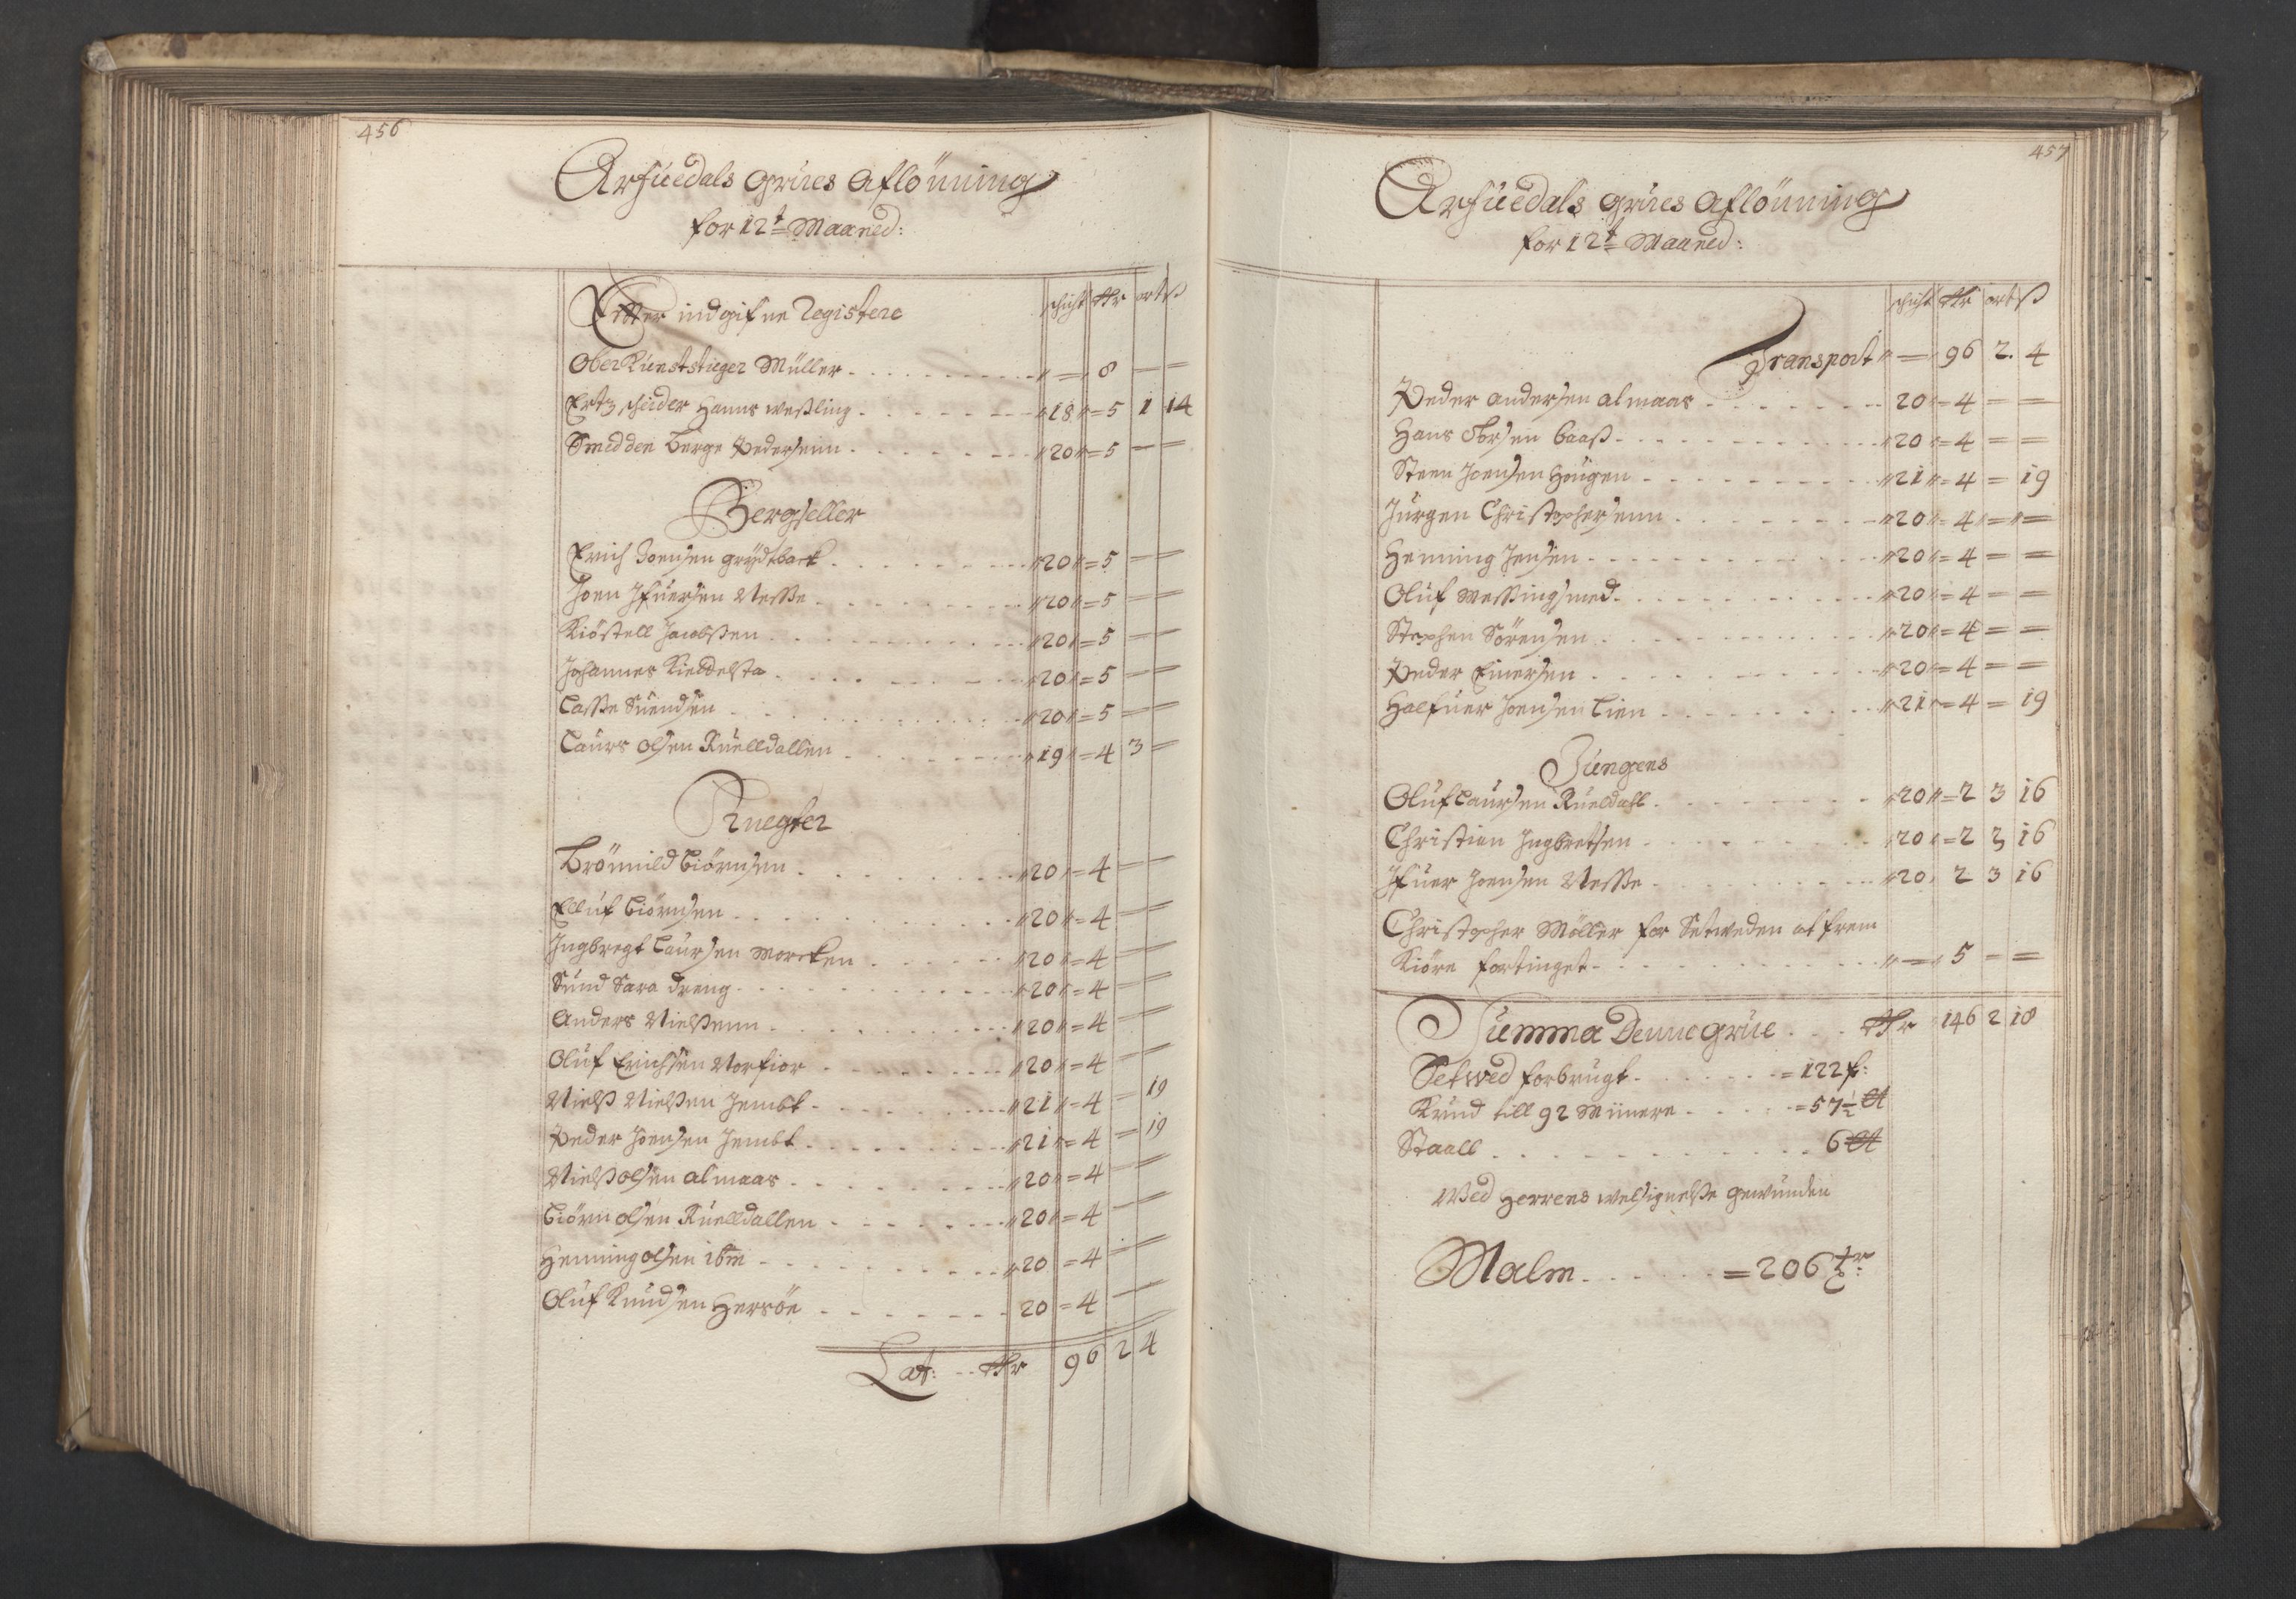 456
Arfuedals Grües Aflönning
for 12t Maaned:
Effter indgifne Registere schicht Rdr ort ß
Ober Künststieger Müller . . . . " = 8 — =
Ertz scheider Hanns Weßling . . . . "18" = 5 1 14
Smedden Berge Pedersenn . . . . "20" = 5 — =
Bergseller
Erich Joensen Grydtback . . . . "20" = 5 — =
Joen Jfuersen Nesse . . . . "20" = 5 — =
Kiöstell Jacobßen . . . . "20" = 5 — =
Johannes . . . . "20" = 5 — =
Lasse Suendsen . . . . "20" = 5 — =
Laurs Olsen Ruelldallen . . . . "19" = 4 3 =
Knegter
Brömild Biörnsen . . . . "20" = 4 — =
Elluf Biörnsen . . . . "20" = 4 — =
Ingbregt Laursen Morcken . . . . "20" = 4 — =
Suend Sara dreng . . . . "20" = 4 — =
Anders Nielßenn . . . . "20" = 4 — =
Oluf Erichsen Norfior . . . . "20" = 4 — =
Nielß Nielßen Jembt . . . . "21" = 4 = 19
Peder Joensen Jembt . . . . "21" = 4 = 19
Nielß Olsen Almaas . . . . "20" = 4 — =
Biörn Olsen Ruelldallen . . . . "20" = 4 — =
Henning Olsen ibm . . . . "20 = 4 — =
Oluf Knudsen Hersöe . . . . 20 = 4 — =
Lat: . . Rdr 96 2 4
457
Arfuedals Grües Aflönning
for 12t Maaned:
schicht Rdr ort ß
Transport " = " 96 2. 4
Peder Andersen Almaas . . . . 20 " = 4 = =
Hans Torsen Baaß . . . . "20 " = 4 = =
Steen Joensen Hougen . . . . "21 " = 4 = 19
Jürgen Christophersenn . . . . "20 " = 4 " = " =
Henning Jensen . . . . "20 " = 4 = =
Oluf Messingsmed . . . . "20 " = 4 = =
Stephen Sörensen . . . . "20 " = 4 = =
Peder Einersen . . . . "20 " = 4 = =
Halfuer Joensen Lien . . . . "21 " = 4 = 19
Jungens
Oluf Laursen Rueldall . . . . "20 " = 2 3 16
Christien Ingbretsen . . . . "20 " = 2 3 16
Jfuer Joensen Nesse . . . . "20 , 2 3 16
Christopher Möller for Setweden at frem
Kiöre fortinget . . . . " = " 5 = =
Summa Denne Grüe . . . Rdr 146 2 18
Setwed forbrugt . . . . = 122 f:
Krud till 92 Miinere . . . . = 57 1/2 ℔
Staall . . . . 6 ℔
Wed Herrens welsignelße gewunden
Malm . . . . = 206 tr: